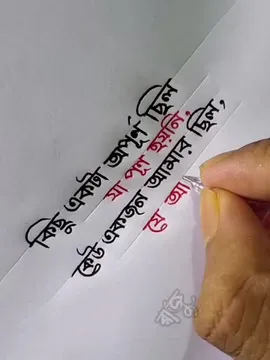 কিছু একটা অপূর্ণ ছিল
যা পূর্ণ হয়নি,
কেউ একজন আমার ছিল,
যে আ